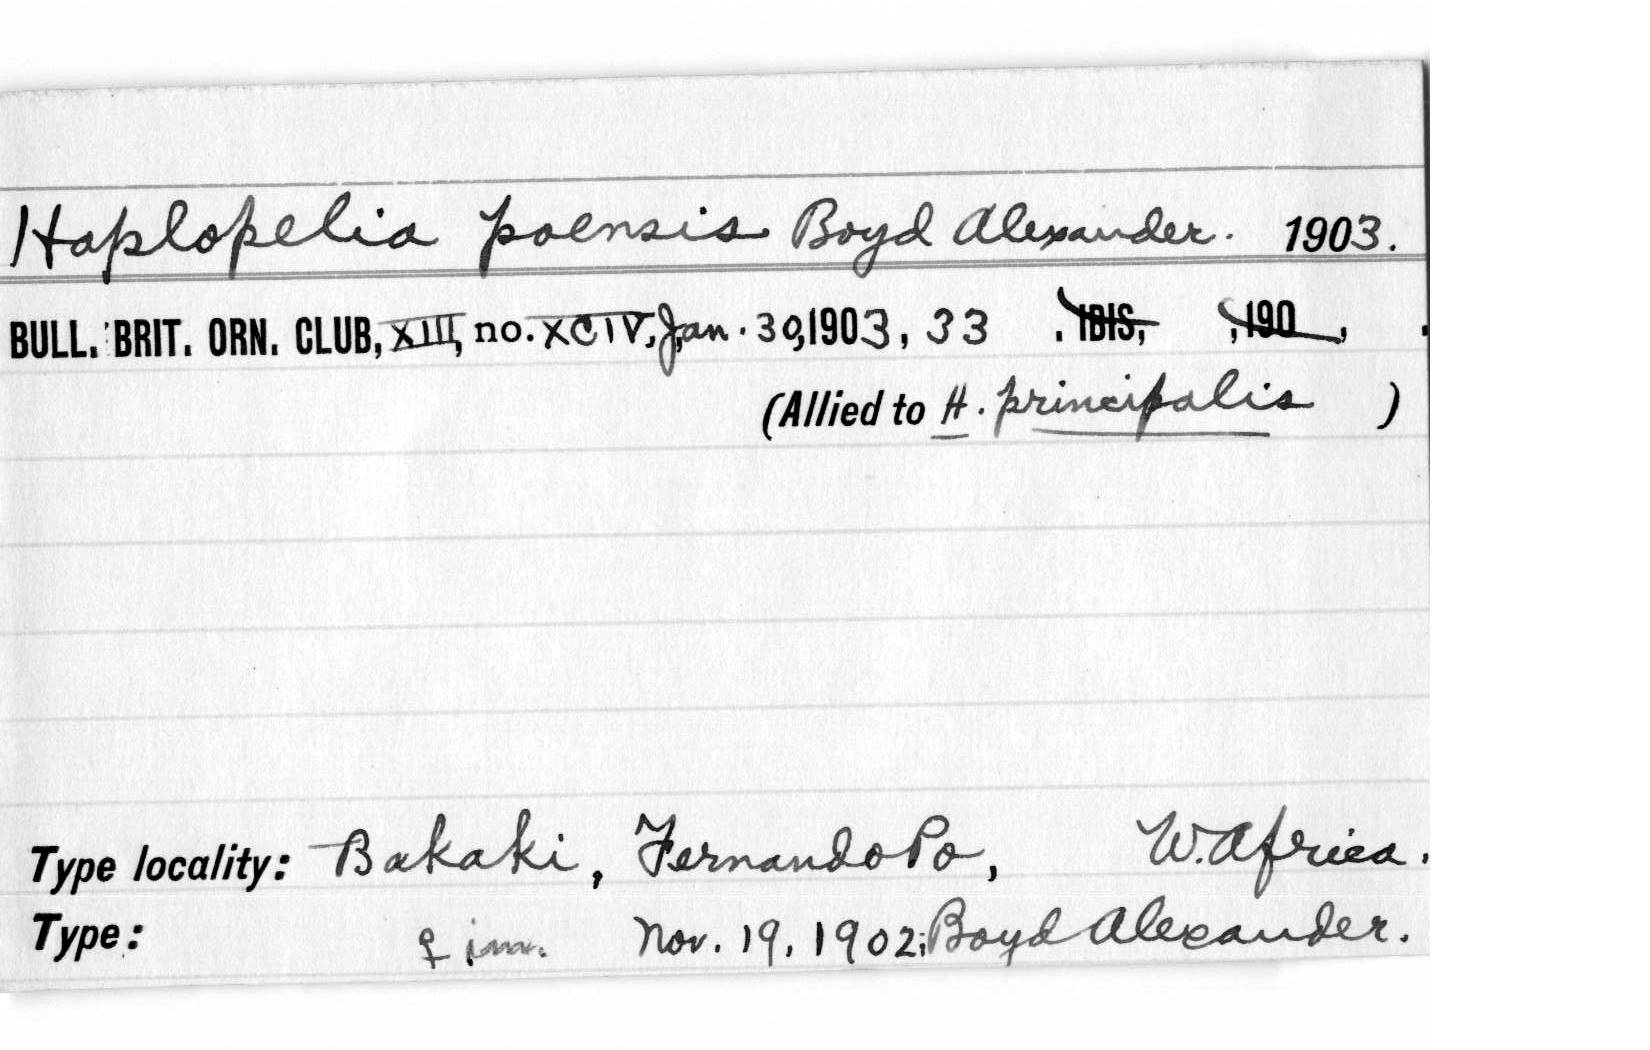 Haplopelia poensis Boyd Alexander. 1903.
BULL. BRIT. ORN. CLUB, XIII, no. XCIV, Jan. 30, 1903, 33 . IBIS, , 190 , .
(Allied to H. principalis )
Type locality: Bakaki, Fernando Po, W. Africa.
Type: ♀ im. Nov. 19, 1902; Boyd Alexander.